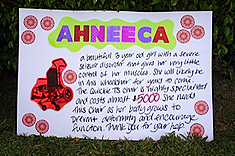 AHNEECA
a beautiful 3 year old girl with a severe
seizure disorder that gives her very little
control of her muscles. She will likely be
in this wheelchair for years to come.
The Quickie TS chair is highly specialized
and costs almost $5000. She needs
this chair as her body grows to
prevent deformity and encourage
function. Thank you for your help.